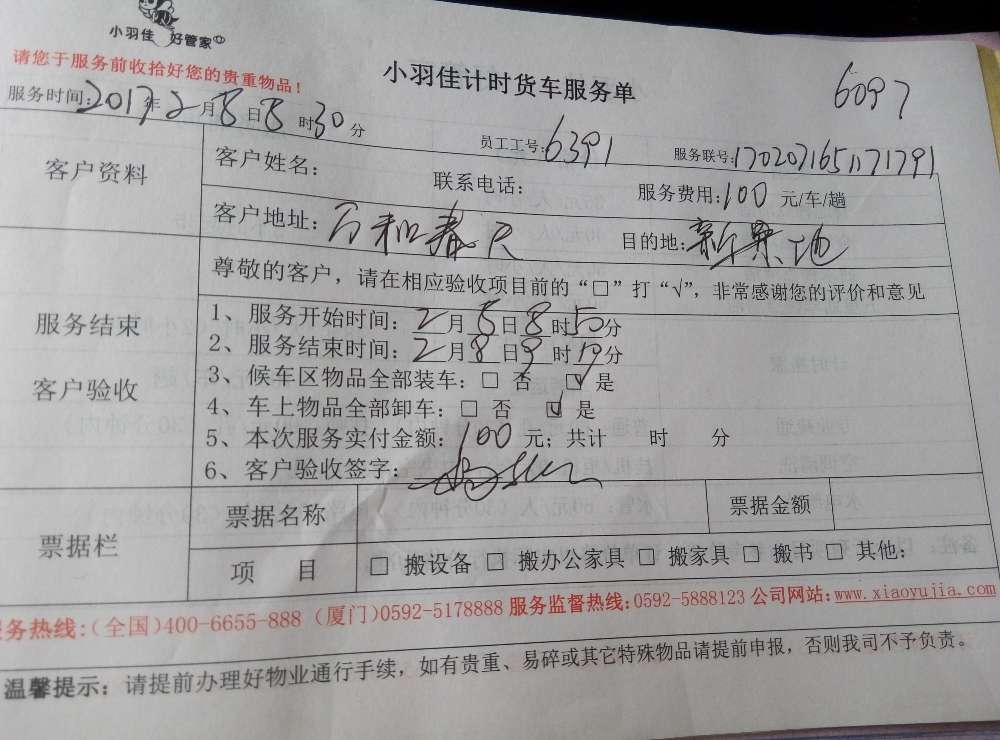 小羽佳 好管家
请您于服务前收拾好您的贵重物品！
小羽佳计时货车服务单
6097
服务时间：2017年2月8日8时30分
员工工号：6391
服务联号：1702071651171791
客户资料
客户姓名：
联系电话：
服务费用：100 元/车/趟
客户地址：万和春天
目的地：新景地
尊敬的客户，请在相应验收项目前的“□”打“√”，非常感谢您的评价和意见
服务结束
客户验收
1、服务开始时间：2月8日8时50分
2、服务结束时间：2月8日9时19分
3、候车区物品全部装车：□ 否 ☑ 是
4、车上物品全部卸车：□ 否 ☑ 是
5、本次服务实付金额：100 元；共计 时 分
6、客户验收签字：
票据栏
票据名称
票据金额
项 目
□ 搬设备 □ 搬办公家具 □ 搬家具 □ 搬书 □ 其他：
务热线：(全国)400-6655-888 (厦门)0592-5178888 服务监督热线：0592-5888123 公司网站：www.xiaoyujia.com
温馨提示：请提前办理好物业通行手续，如有贵重、易碎或其它特殊物品请提前申报，否则我司不予负责。